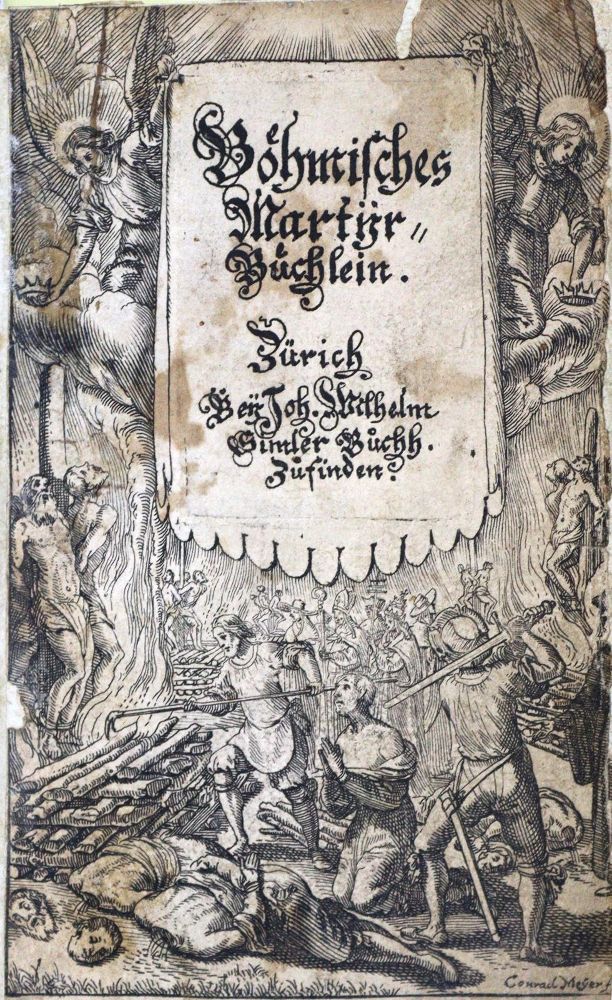 Böhmisches
Martÿr⸗
Büchlein.
Zürich
Beÿ Joh. Wilhelm
Simler Buchh.
Zufinden.
Conrad Meÿer